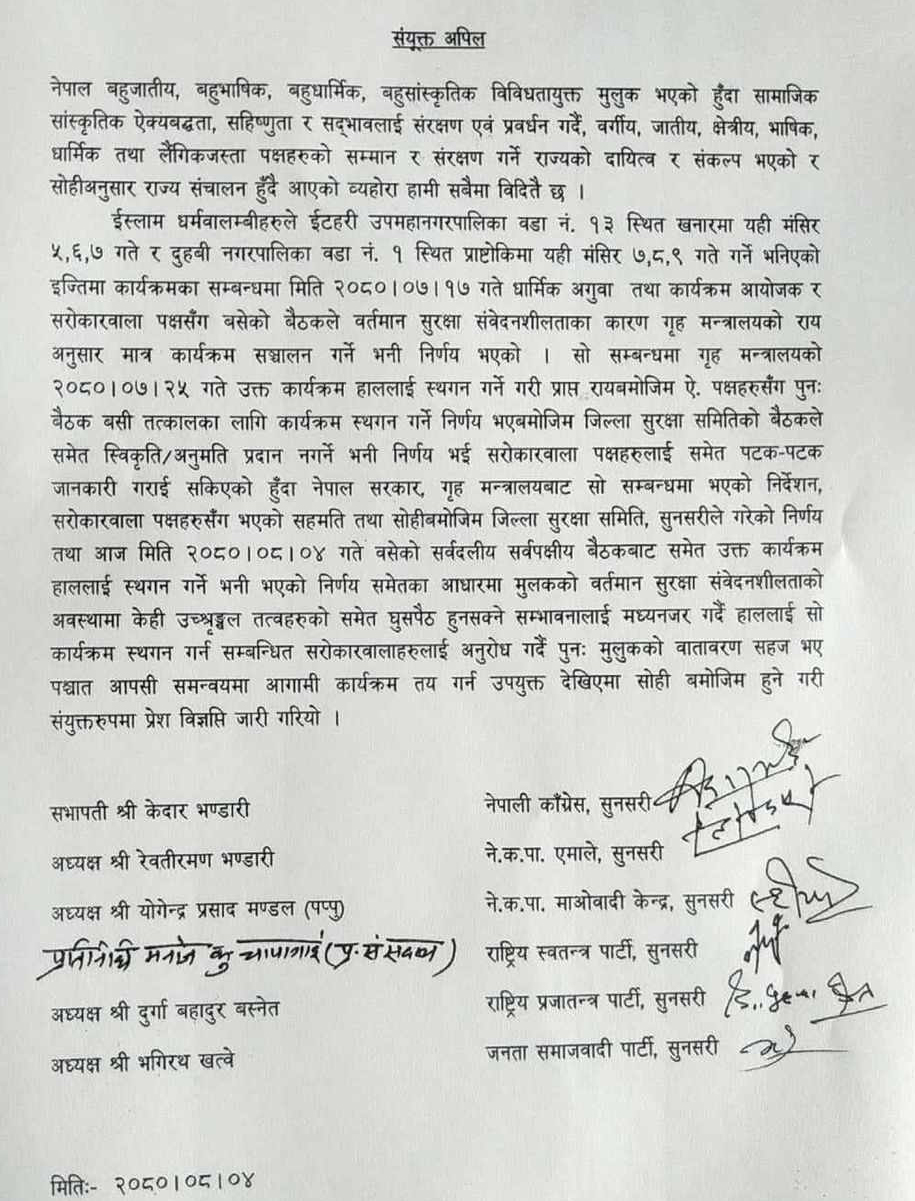 संयूक्त अपिल
नेपाल बहुजातीय, बहुभाषिक, बहुधार्मिक, बहुसांस्कृतिक विविधतायुक्त मुलुक भएको हुँदा सामाजिक
सांस्कृतिक ऐक्यबद्धता, सहिष्णुता र सद्‌भावलाई संरक्षण एवं प्रवर्धन गर्दै, वर्गीय, जातीय, क्षेत्रीय, भाषिक,
धार्मिक तथा लैंगिकजस्ता पक्षहरुको सम्मान र संरक्षण गर्ने राज्यको दायित्व र संकल्प भएको र
सोहीअनुसार राज्य संचालन हुँदै आएको व्यहोरा हामी सबैमा विदितै छ ।
ईस्लाम धर्मवालम्बीहरुले ईटहरी उपमहानगरपालिका वडा नं. १३ स्थित खनारमा यही मंसिर
५,६,७ गते र दुहबी नगरपालिका वडा नं. १ स्थित प्राष्टोकिमा यही मंसिर ७,८,९ गते गर्ने भनिएको
इज्तिमा कार्यक्रमका सम्बन्धमा मिति २०८०।०७।१७ गते धार्मिक अगुवा तथा कार्यक्रम आयोजक र
सरोकारवाला पक्षसँग बसेको बैठकले वर्तमान सुरक्षा संवेदनशीलताका कारण गृह मन्त्रालयको राय
अनुसार मात्र कार्यक्रम सञ्चालन गर्ने भनी निर्णय भएको । सो सम्बन्धमा गृह मन्त्रालयको
२०८०।०७।२५ गते उक्त कार्यक्रम हाललाई स्थगन गर्ने गरी प्राप्त रायबमोजिम ऐ. पक्षहरुसँग पुनः
बैठक बसी तत्कालका लागि कार्यक्रम स्थगन गर्ने निर्णय भएबमोजिम जिल्ला सुरक्षा समितिको बैठकले
समेत स्विकृति/अनुमति प्रदान नगर्ने भनी निर्णय भई सरोकारवाला पक्षहरुलाई समेत पटक-पटक
जानकारी गराई सकिएको हुँदा नेपाल सरकार, गृह मन्त्रालयबाट सो सम्बन्धमा भएको निर्देशन,
सरोकारवाला पक्षहरुसँग भएको सहमति तथा सोहीबमोजिम जिल्ला सुरक्षा समिति, सुनसरीले गरेको निर्णय
तथा आज मिति २०८०।०८।०४ गते वसेको सर्वदलीय सर्वपक्षीय बैठकबाट समेत उक्त कार्यक्रम
हाललाई स्थगन गर्ने भनी भएको निर्णय समेतका आधारमा मुलकको वर्तमान सुरक्षा संवेदनशीलताको
अवस्थामा केही उच्श्रृङ्खल तत्वहरुको समेत घुसपैठ हुनसक्ने सम्भावनालाई मध्यनजर गर्दै हाललाई सो
कार्यक्रम स्थगन गर्न सम्बन्धित सरोकारवालाहरुलाई अनुरोध गर्दै पुनः मुलुकको वातावरण सहज भए
पश्चात आपसी समन्वयमा आगामी कार्यक्रम तय गर्न उपयुक्त देखिएमा सोही बमोजिम हुने गरी
संयुक्तरुपमा प्रेश विज्ञप्ति जारी गरियो ।
सभापती श्री केदार भण्डारी नेपाली काँग्रेस, सुनसरी
अध्यक्ष श्री रेवतीरमण भण्डारी ने.क.पा. एमाले, सुनसरी
अध्यक्ष श्री योगेन्द्र प्रसाद मण्डल (पप्पु) ने.क.पा. माओवादी केन्द्र, सुनसरी
प्रतिनिधी मनोज कु चापागाई (प्र.सं सदस्य) राष्ट्रिय स्वतन्त्र पार्टी, सुनसरी
अध्यक्ष श्री दुर्गा बहादुर बस्नेत राष्ट्रिय प्रजातन्त्र पार्टी, सुनसरी
अध्यक्ष श्री भगिरथ खत्वे जनता समाजवादी पार्टी, सुनसरी
मितिः- २०८०।०८।०४